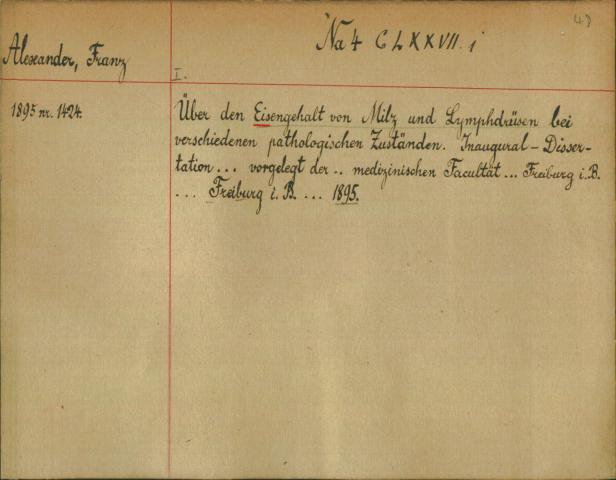 Alexander, Franz
Na 4 CLXXVII. i
I.
1895 nr. 1424.
Über den Eisengehalt von Milz und Lymphdrüsen bei
verschiedenen pathologischen Zuständen. Inaugural-Disser-
tation... vorgelegt der .. medizinischen Facultät ... Freiburg i. B.
... Freiburg i. B. ... 1895.